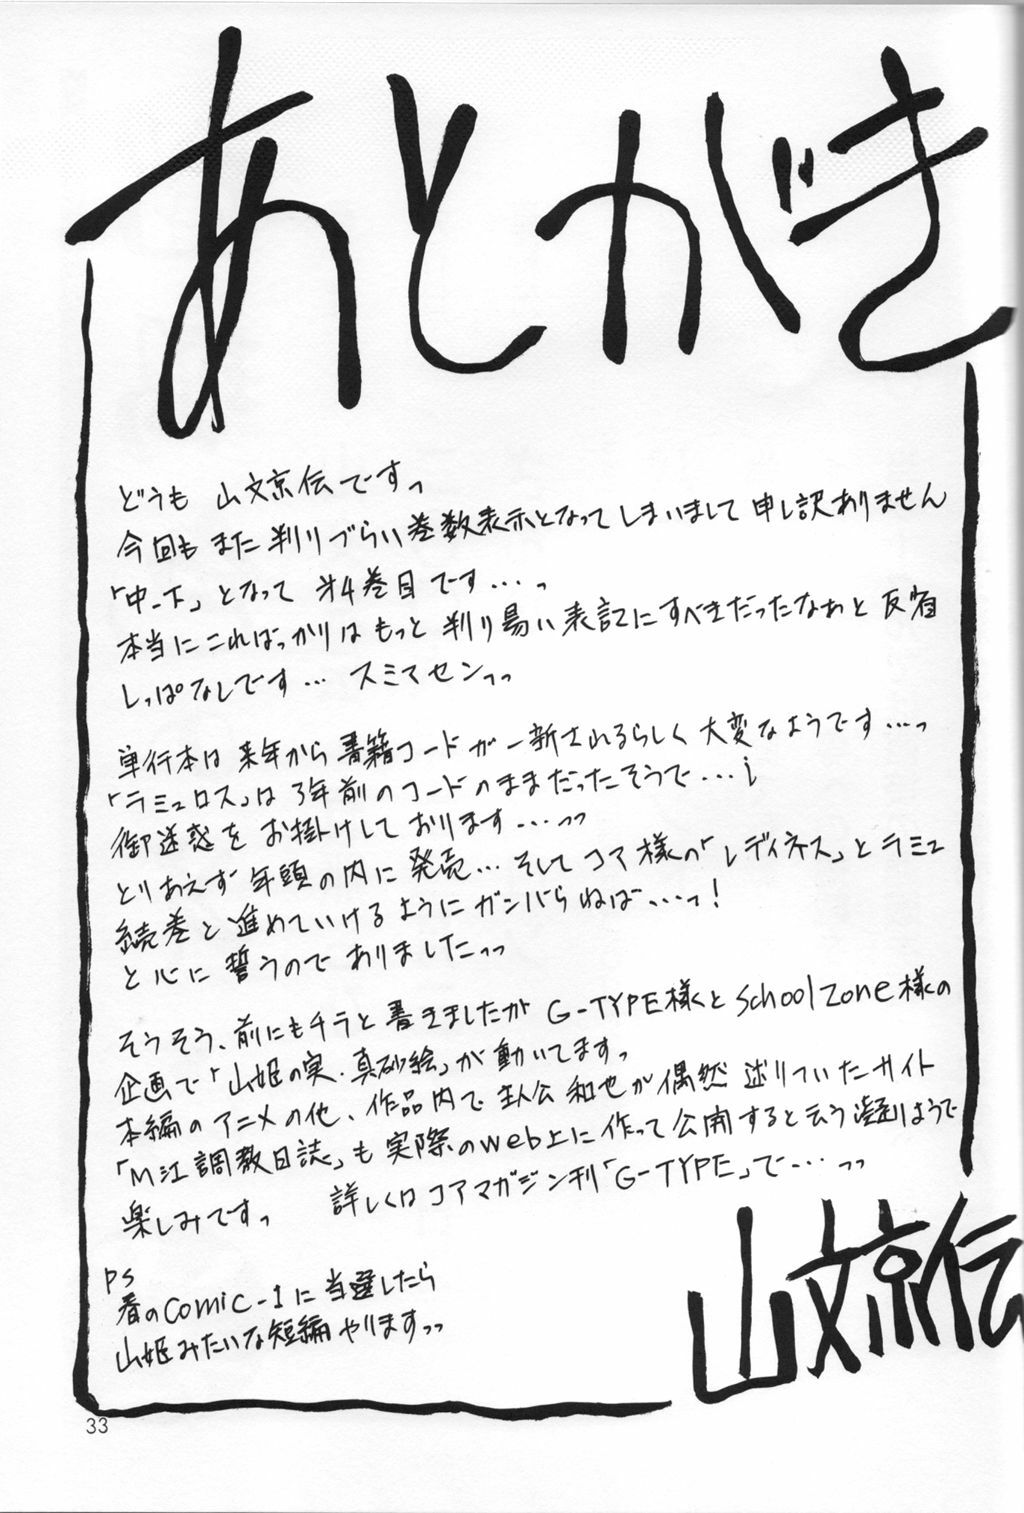 あとがき
どうも 山文京伝ですっ
今回も また 判りづらい巻数表示となってしまいまして 申し訳ありません
「中-下」となって 第4巻目です…っ
本当にこればっかりは もっと 判り易い表記にすべきだったなぁと 反省
しっぱなしです… スミマセンっっ
単行本は 来年から 書籍コードが一新されるらしく 大変なようです…っ
「ラミュロス」は 3年前のコードのままだったそうで…
御迷惑を お掛けしております…っっ
とりあえず 年頭の内に 発売… そして コア様の「レディネス」と ラミュ
続巻と 進めていけるように ガンバらねば…っ!
と 心に 誓うのでありましたっっ
そうそう、前にもチラと 書きましたが G-TYPE様くと SchoolZone様の
企画で「山姫の実・真砂絵」が 動いてますっ
本編のアニメの他、作品内で 主人公 和也が 偶然 辿りついたサイト
「M江調教日誌」も 実際のweb上に 作って 公開すると云う凝りようで
楽しみですっ 詳しくは コアマガジン刊「G-TYPE」で…っっ
PS
春のComic-1に 当選したら
山姫みたいな短編 やりますっっ
山文京伝
33